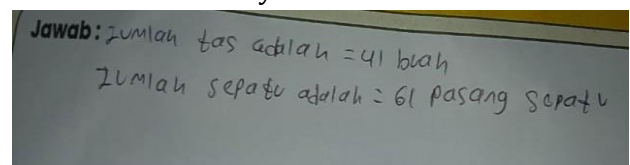 Jawab: Jumlah tas adalah = 41 buah
Jumlah sepatu adalah = 61 pasang sepatu